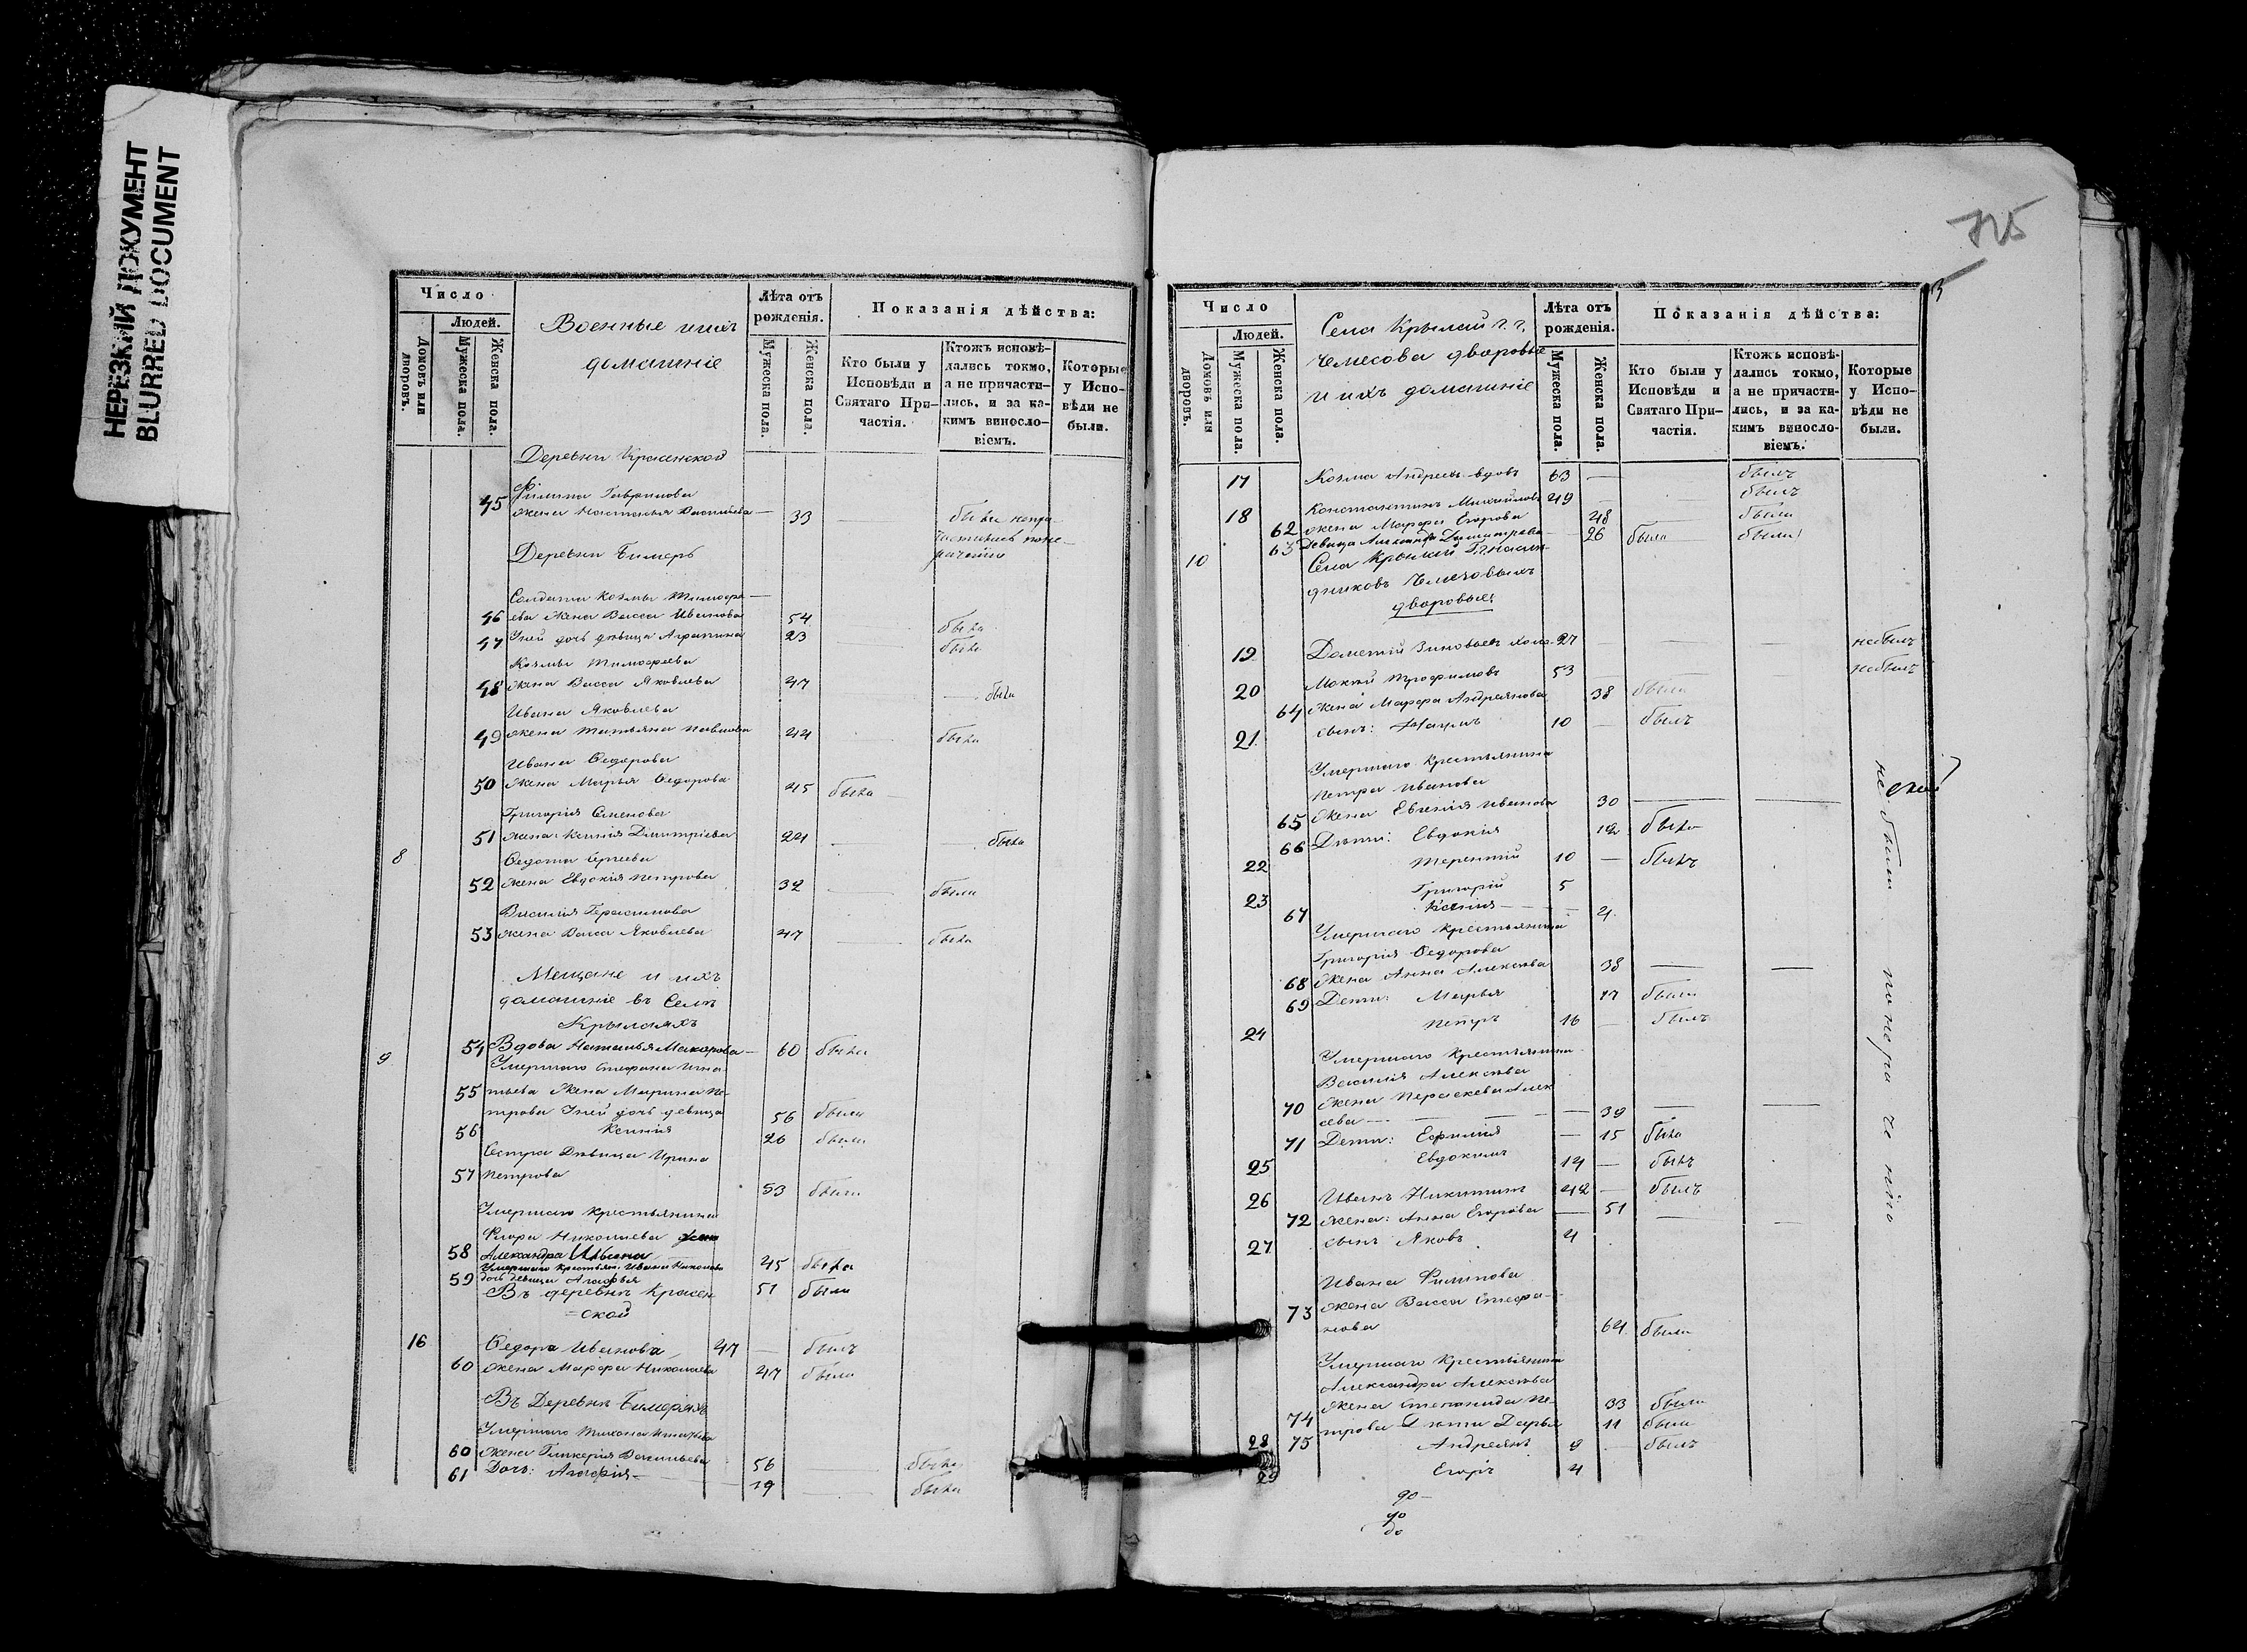 НЕРЕЗКИЙ ДОКУМЕНТ
BLURRED DOCUMENT
Число
Людей.
Домовъ или дворовъ.
Мужеска пола.
Женска пола.
Военные и ихъ
домашніе
Лѣта отъ рожденія.
Мужеска пола.
Женска пола.
Показанія дѣйства:
Кто были у Исповѣди и Святаго Причастія.
Ктожъ исповѣдались токмо, а не причастились, и за какимъ винословіемъ.
Которые у Исповѣди не были.
Деревни Красенской
Филипа Гаврилова
45 жена Наталья Васильева — 33 — была непри
частились по не
рачению
Деревни Бимеръ
Солдата Козмы Тимофе
46 ева жена Васса Иванова 54 была
47 У ней дочь девица Агрипина 23 была
Козмы Тимофеева
48 жена Васса Яковлева 47 была
Ивана Яковлева
49 жена Татьяна Павлова 44 была
Ивана Ѳедорова
50 жена Марья Ѳедорова 45 была
Григорія Семенова
51 жена: Ксенія Дмитріева 24 была
8
Ѳедота
52 жена Евдокія Петрова 32 была
Василія Герасимова
53 жена Васса Яковлева 47 была
Мещане и ихъ
домашніе въ Селѣ
Крылаяхъ
9 54 Вдова Наталья Макарова — 60 была
Умершаго Стефана Игна
55 тьева Жена Марина Пе
трова У ней дочь девица 56 была
56 Ксенія 26 была
Сестра Дѣвица Ирина
57 Петрова 53 была
Умершаго крестьянина
Флора Николаева
58 Александра Ильина 45 была
Умершаго крестьян. Ивана Николаева
59 дочь девица Агафья 51 была
Въ деревнѣ Красен
=ской
16 Ѳедора Иванова 47 — былъ
60 жена Марфа Николаева 47 была
Въ Деревнѣ Бимеряхъ
Умершаго Тихона Игнатьева
60 жена Гликерія Васильева 56 была
61 Дочь: Агафія — 19 была
725
3
Число
Людей.
Домовъ или дворовъ.
Мужеска пола.
Женска пола.
Села Крылай г. г.
Чемесова дворовые
и ихъ домашніе
Лѣта отъ рожденія.
Мужеска пола.
Женска пола.
Показанія дѣйства:
Кто были у Исповѣди и Святаго Причастія.
Ктожъ исповѣдались токмо, а не причастились, и за какимъ винословіемъ.
Которые у Исповѣди не были.
17 Козма Андреевъ вдовъ 63 — былъ
18 Константинъ Михайловъ 49 — былъ
62 жена Марфа Егорова 48 была
63 Девица Александра Димитрева 26 была была
10 Села Крылай Г. г. наслѣ
дниковъ Чемезовыхъ
дворовые:
19 Дометій Зиновьевъ холо. 27 — небылъ
20 Мокей Трофимовъ 53 небылъ
64 жена Марфа Андреянова 38 была
21 сынъ: Наумъ 10 — былъ
Умершаго крестьянина
Петра Иванова
65 жена Евгенія Иванова 30
66 Дѣти: Евдокія 12 была
22 Терентій 10 — былъ
23 Григорій 5
67 Ксенія — 4
Умершаго крестьянина
Григорія Ѳедорова
68 жена Анна Алексѣва 38
69 Дети: Марья 17 была
24 Петръ 16 — былъ
Умершаго крестьянина
Василія Алексѣва
70 жена Параскева Алек
сева — 39
71 Дети: Ефимія — 15 была
25 Евдокимъ 14 — былъ
26 Иванъ Никитинъ 42 — былъ
72 жена: Анна Егорова — 51
27 сынъ Яковъ 4
не были по нера че нiю
Ивана Филипова
73 жена Васса Стефа
нова 64 была
Умершаго крестьянина
Александра Алексѣва
74 жена Степанида Пе- 33 была
75 трова Дѣти Дарья 11 была
28 Андреянъ 9 — былъ
29 Егоръ 4
до
до
до